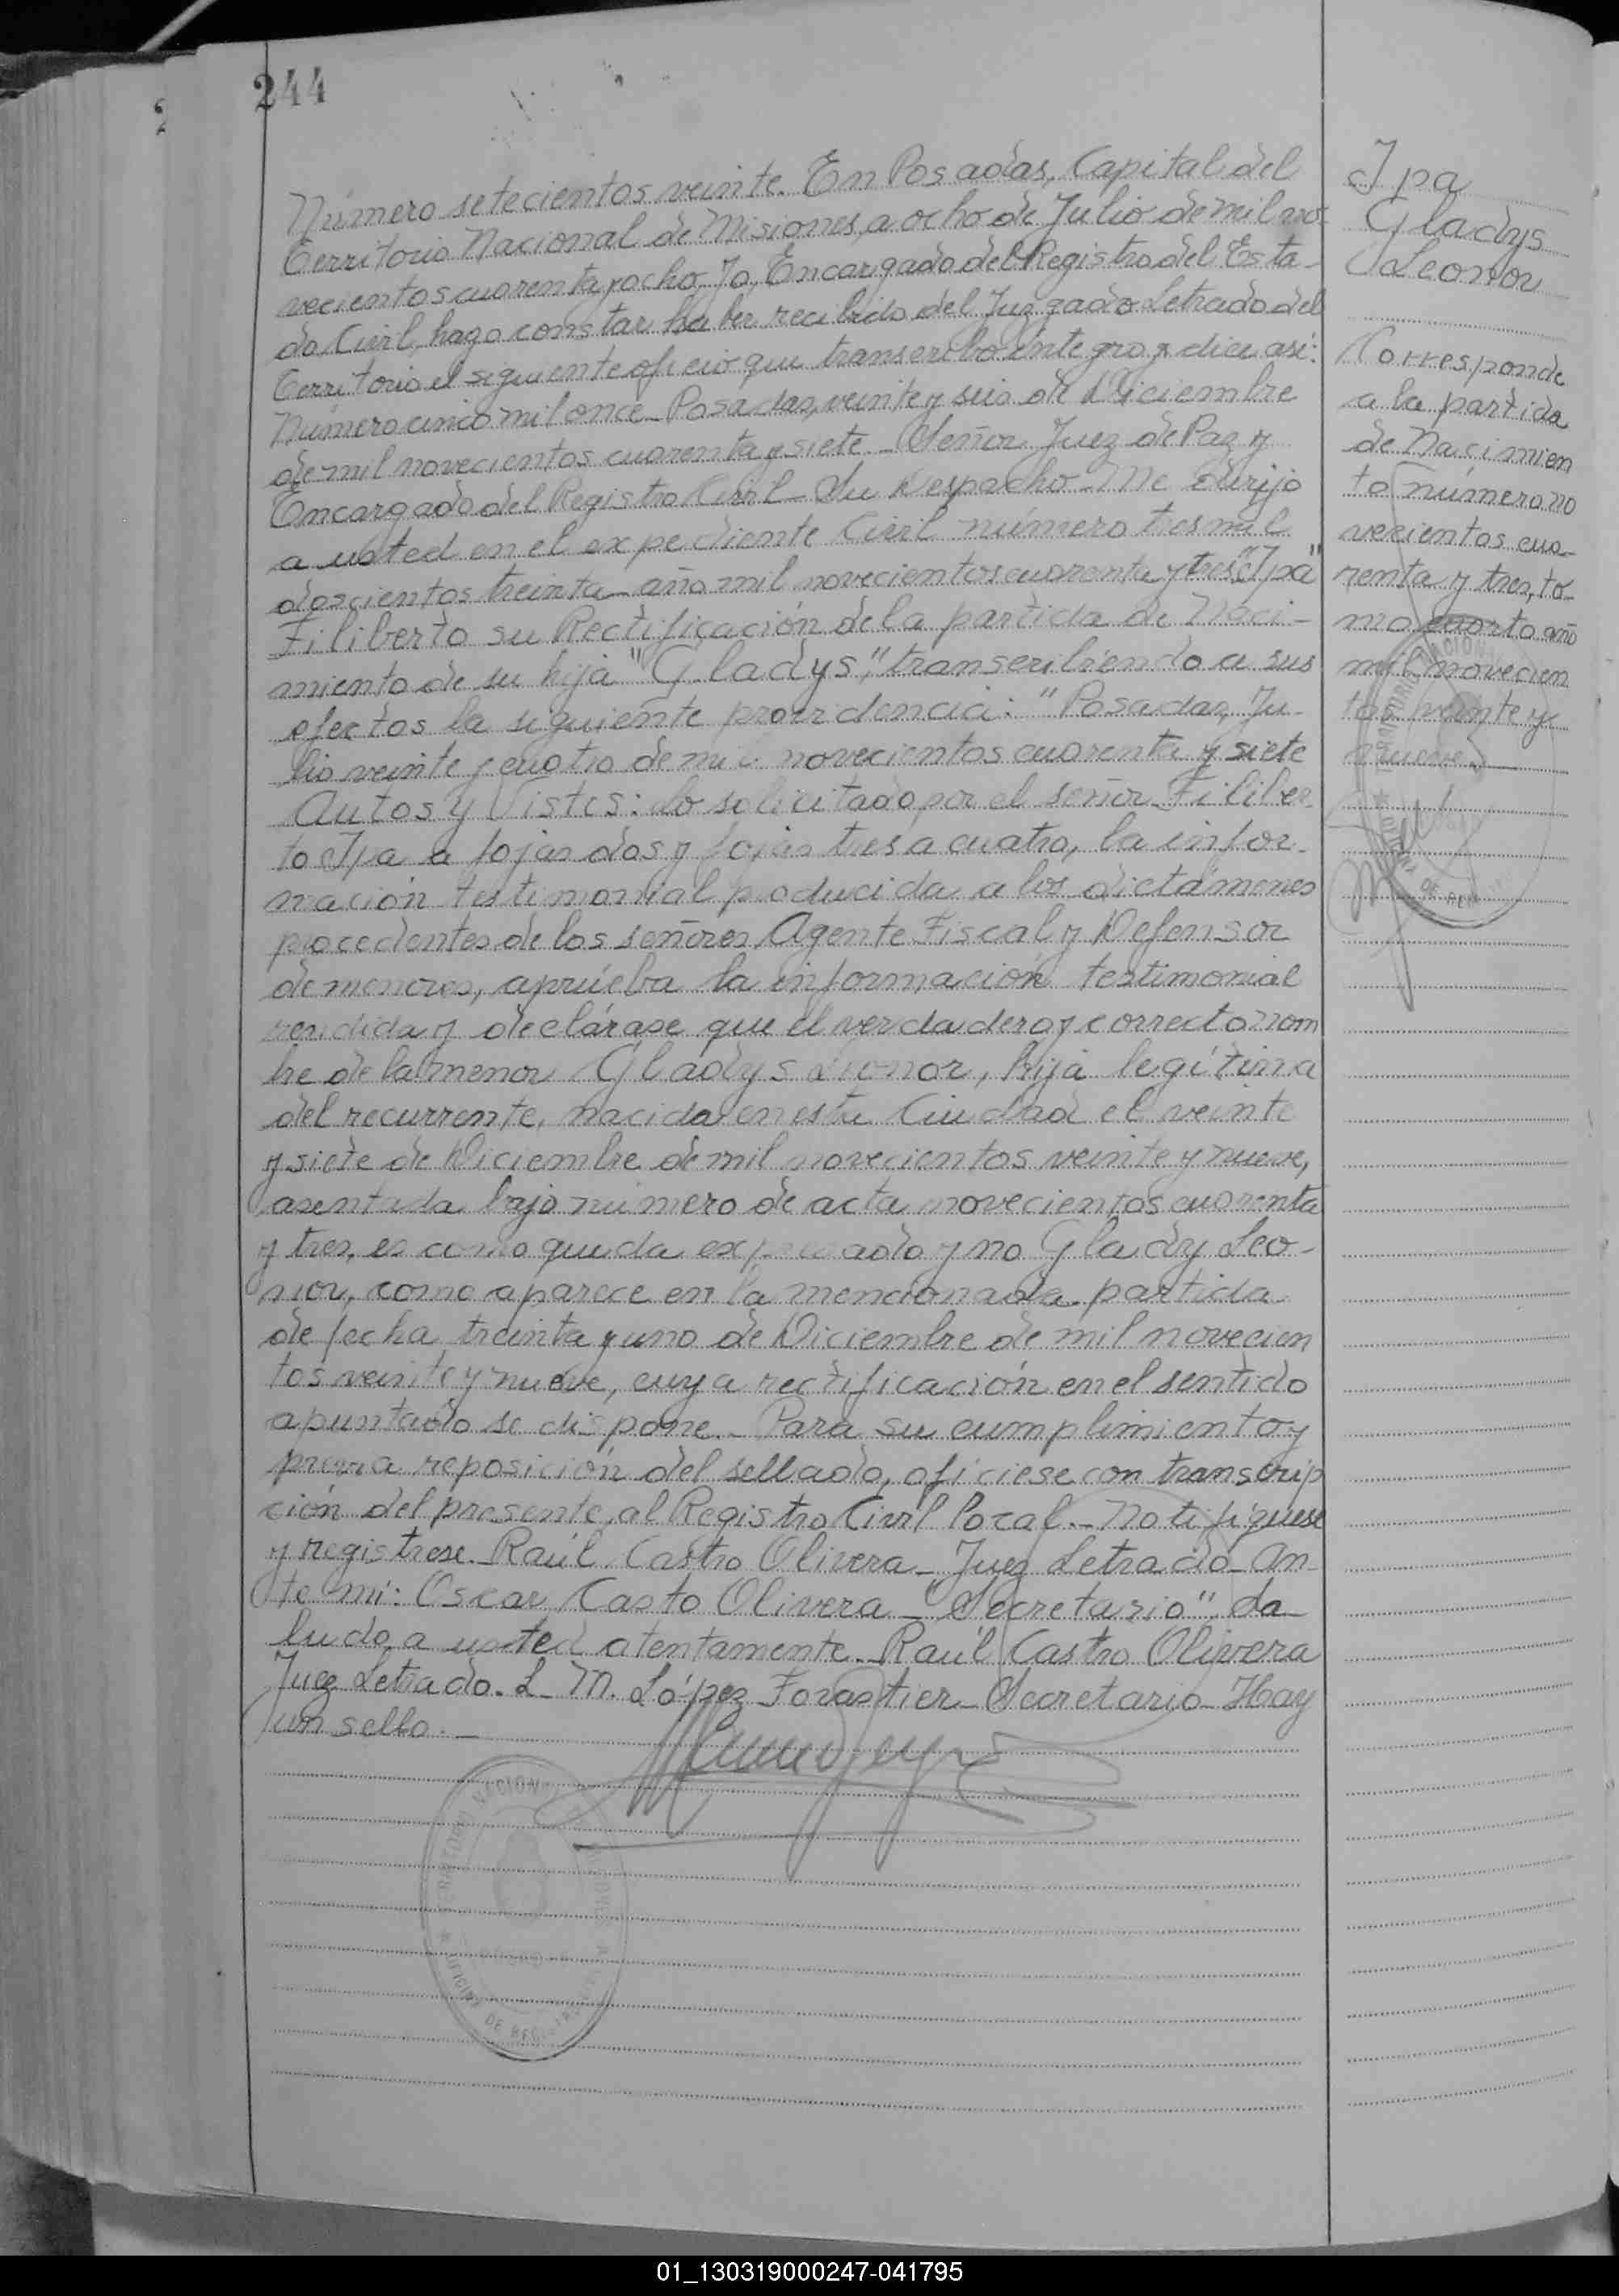 244
Número setecientos veinte. En Posadas, Capital del
Territorio Nacional de Misiones, a ocho de Julio de mil no-
vecientos cuarenta y ocho. Yo, Encargado del Registro del Esta-
do Civil, hago constar haber recibido del Juzgado Letrado del
Territorio el siguiente oficio que transcribo íntegro y dice así:
Número cinco mil once - Posadas, veinte y seis de Diciembre
de mil novecientos cuarenta y siete - Señor Juez de Paz y
Encargado del Registro Civil - Su Despacho - Me dirijo
a usted en el expediente Civil número tres mil
doscientos treinta - año mil novecientos cuarenta y tres "Ipa"
Filiberto su Rectificación de la partida de Naci-
miento de su hija "Gladys", transcribiendo a sus
efectos la siguiente providencia: "Posadas, Ju-
lio veinte y cuatro de mil novecientos cuarenta y siete
Autos y Vistos: Lo solicitado por el señor Filiber-
to Ipa a fojas dos y fojas tres a cuatro, la infor-
mación testimonial producida a los dictámenes
procedentes de los señores Agente Fiscal y Defensor
de menores, apruéba la información testimonial
rendida y declárase que el verdadero y correcto nom
bre de la menor Gladys Leonor, hija legítima
del recurrente, nacida en esta Ciudad el veinte
y siete de Diciembre de mil novecientos veinte y nueve,
asentada bajo número de acta novecientos cuarenta
y tres, es como queda expresado y no Glady Leo-
nor, como aparece en la mencionada partida
de fecha treinta y uno de Diciembre de mil novecien
tos veinte y nueve, cuya rectificación en el sentido
apuntado se dispone. - Para su cumplimiento y
previa reposición del sellado, ofíciese con transcrip
ción del presente, al Registro Civil local. - Notifíquese
y regístrese. Raúl Castro Olivera - Juez Letrado - An-
te mí: Oscar Casto Olivera - Secretario". Sa-
ludo a usted atentamente. Raúl Castro Olivera
Juez Letrado. L. M. López Forastier - Secretario - Hay
un sello. -
Ipa
Gladys
Leonor
Corresponde
a la partida
de Nacimien
to número no
vecientos cua-
renta y tres, to-
mo cuarto año
mil novecien
tos veinte y
nueve. -
01_130319000247-041795